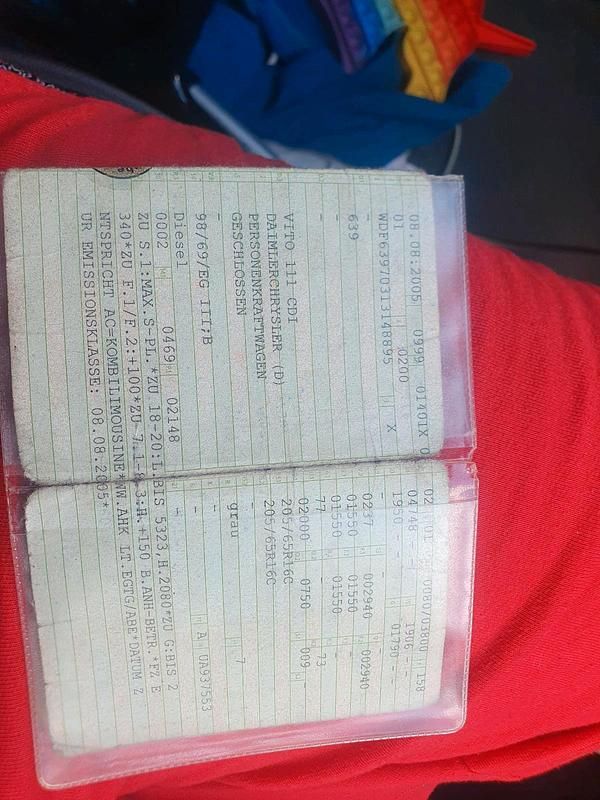 08.08.2005 0999 0080/03800 158
01 0200 04/48 - 1906 - -
WDF63970313148895 X 1950 - - 01790 - -
- - - -
639 0237 002940 002940
- 01550 01550 -
- 01550 01550 -
VITO 111 CDI 77 - 73 -
DAIMLERCHRYSLER (D) 02000 0750 009 -
PERSONENKRAFTWAGEN 205/65R16C
GESCHLOSSEN 205/65R16C
- -
98/69/EG III;B grau 7
Diesel - -
0002 0469 02148 - A UA937553
ZU S.1:MAX.S-PL.*ZU 18-20:L.BIS 5323,H.2080*ZU G:BIS 2
340*ZU F.1/F.2:+100*ZU 7.1-8.3:H.+150 B.ANH-BETR.*FZ E
NTSPRICHT AC=KOMBILIMOUSINE*WW.AHK LT.EGTG/ABE*DATUM Z
UR EMISSIONSKLASSE: 08.08.2005*